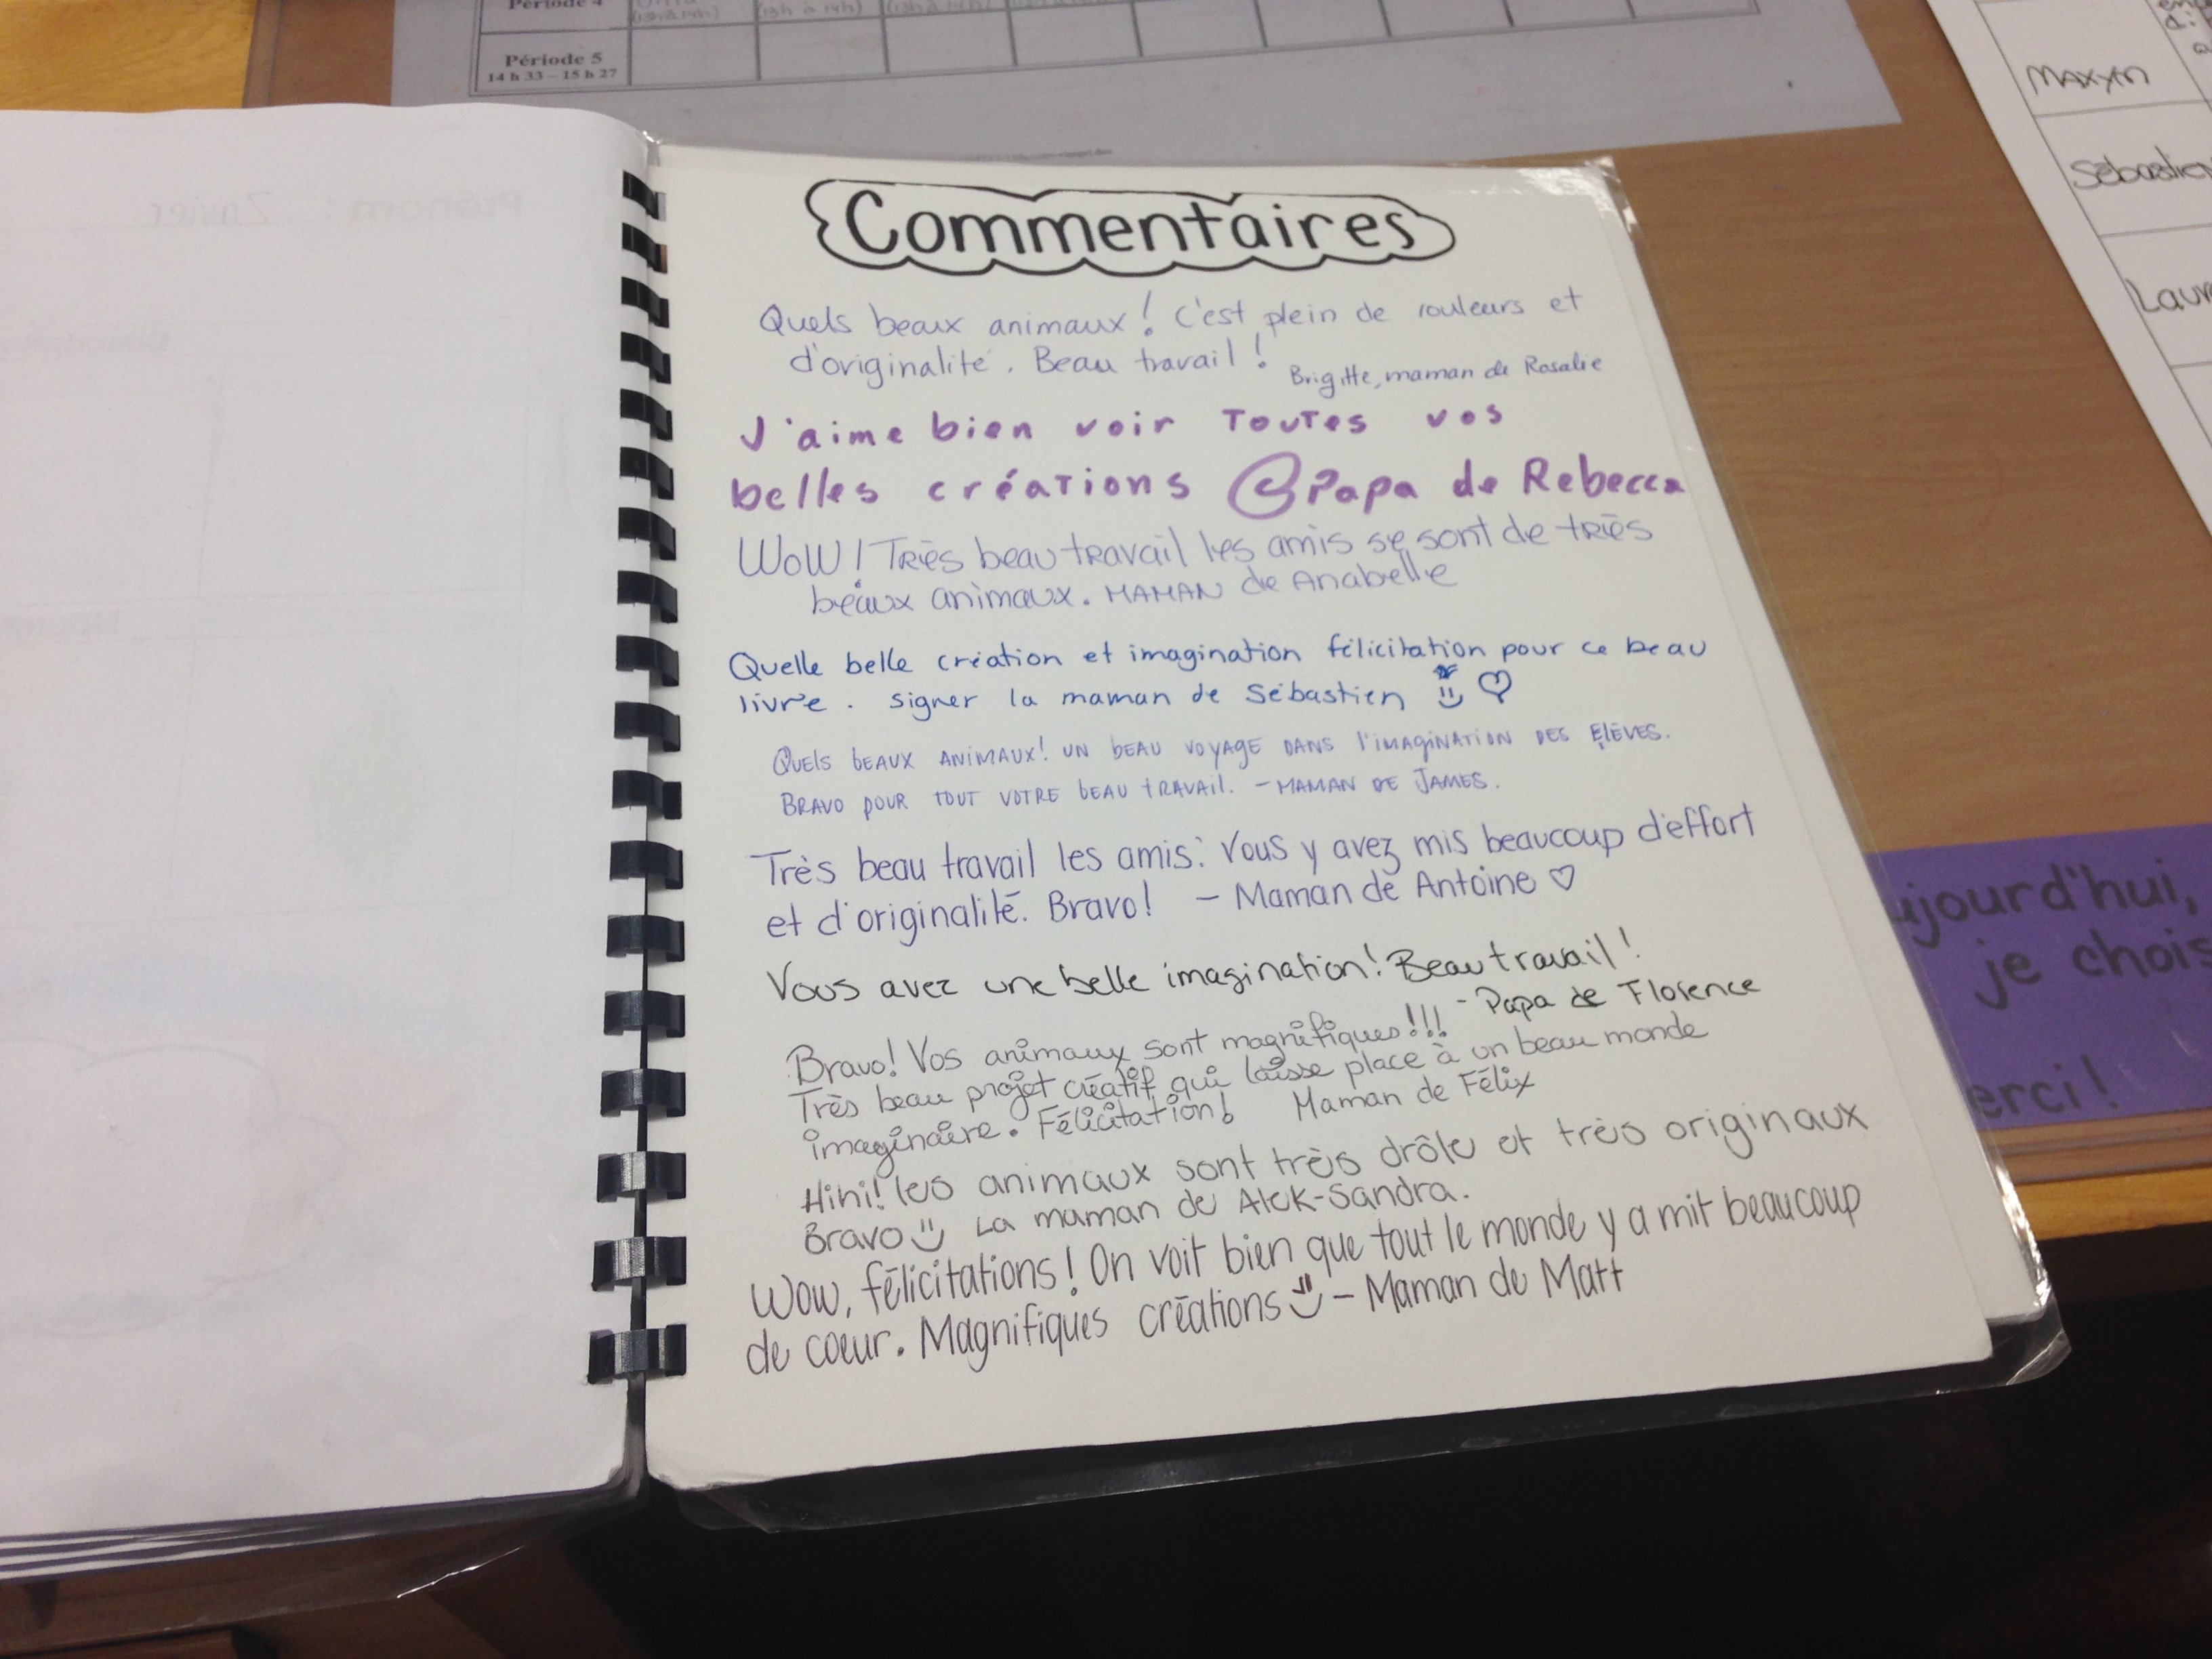 Période 4
(13h à 14h) (13h à 14h) (13h à 14h)
Période 5
14 h 33 – 15 h 27
Maxym
Sébastien
Prénom : Zavier
Commentaires
Quels beaux animaux ! C'est plein de couleurs et
d'originalité. Beau travail !
Brigitte, maman de Rosalie
J'aime bien voir toutes vos
belles créations Papa de Rebecca
WOW ! Très beau travail les amis se sont de très
beaux animaux. MAMAN de Anabelle
Quelle belle création et imagination félicitation pour ce beau
livre. signer la maman de Sébastien
Quels beaux animaux! Un beau voyage dans l'imagination des élèves.
Bravo pour tout votre beau travail. - Maman de James.
Très beau travail les amis: Vous y avez mis beaucoup d'effort
et d'originalité. Bravo! - Maman de Antoine ♡
Vous avez une belle imagination! Beau travail!
- Papa de Florence
Bravo! Vos animaux sont magnifiques!!!
Très beau projet créatif qui laisse place à un beau monde
imaginaire. Félicitation! Maman de Félix
Hihi! les animaux sont très drôle et très originaux
Bravo La maman de Alek-Sandra.
Wow, félicitations! On voit bien que tout le monde y a mit beaucoup
de coeur. Magnifiques créations - Maman de Matt
ujourd'hui,
je chois
erci!